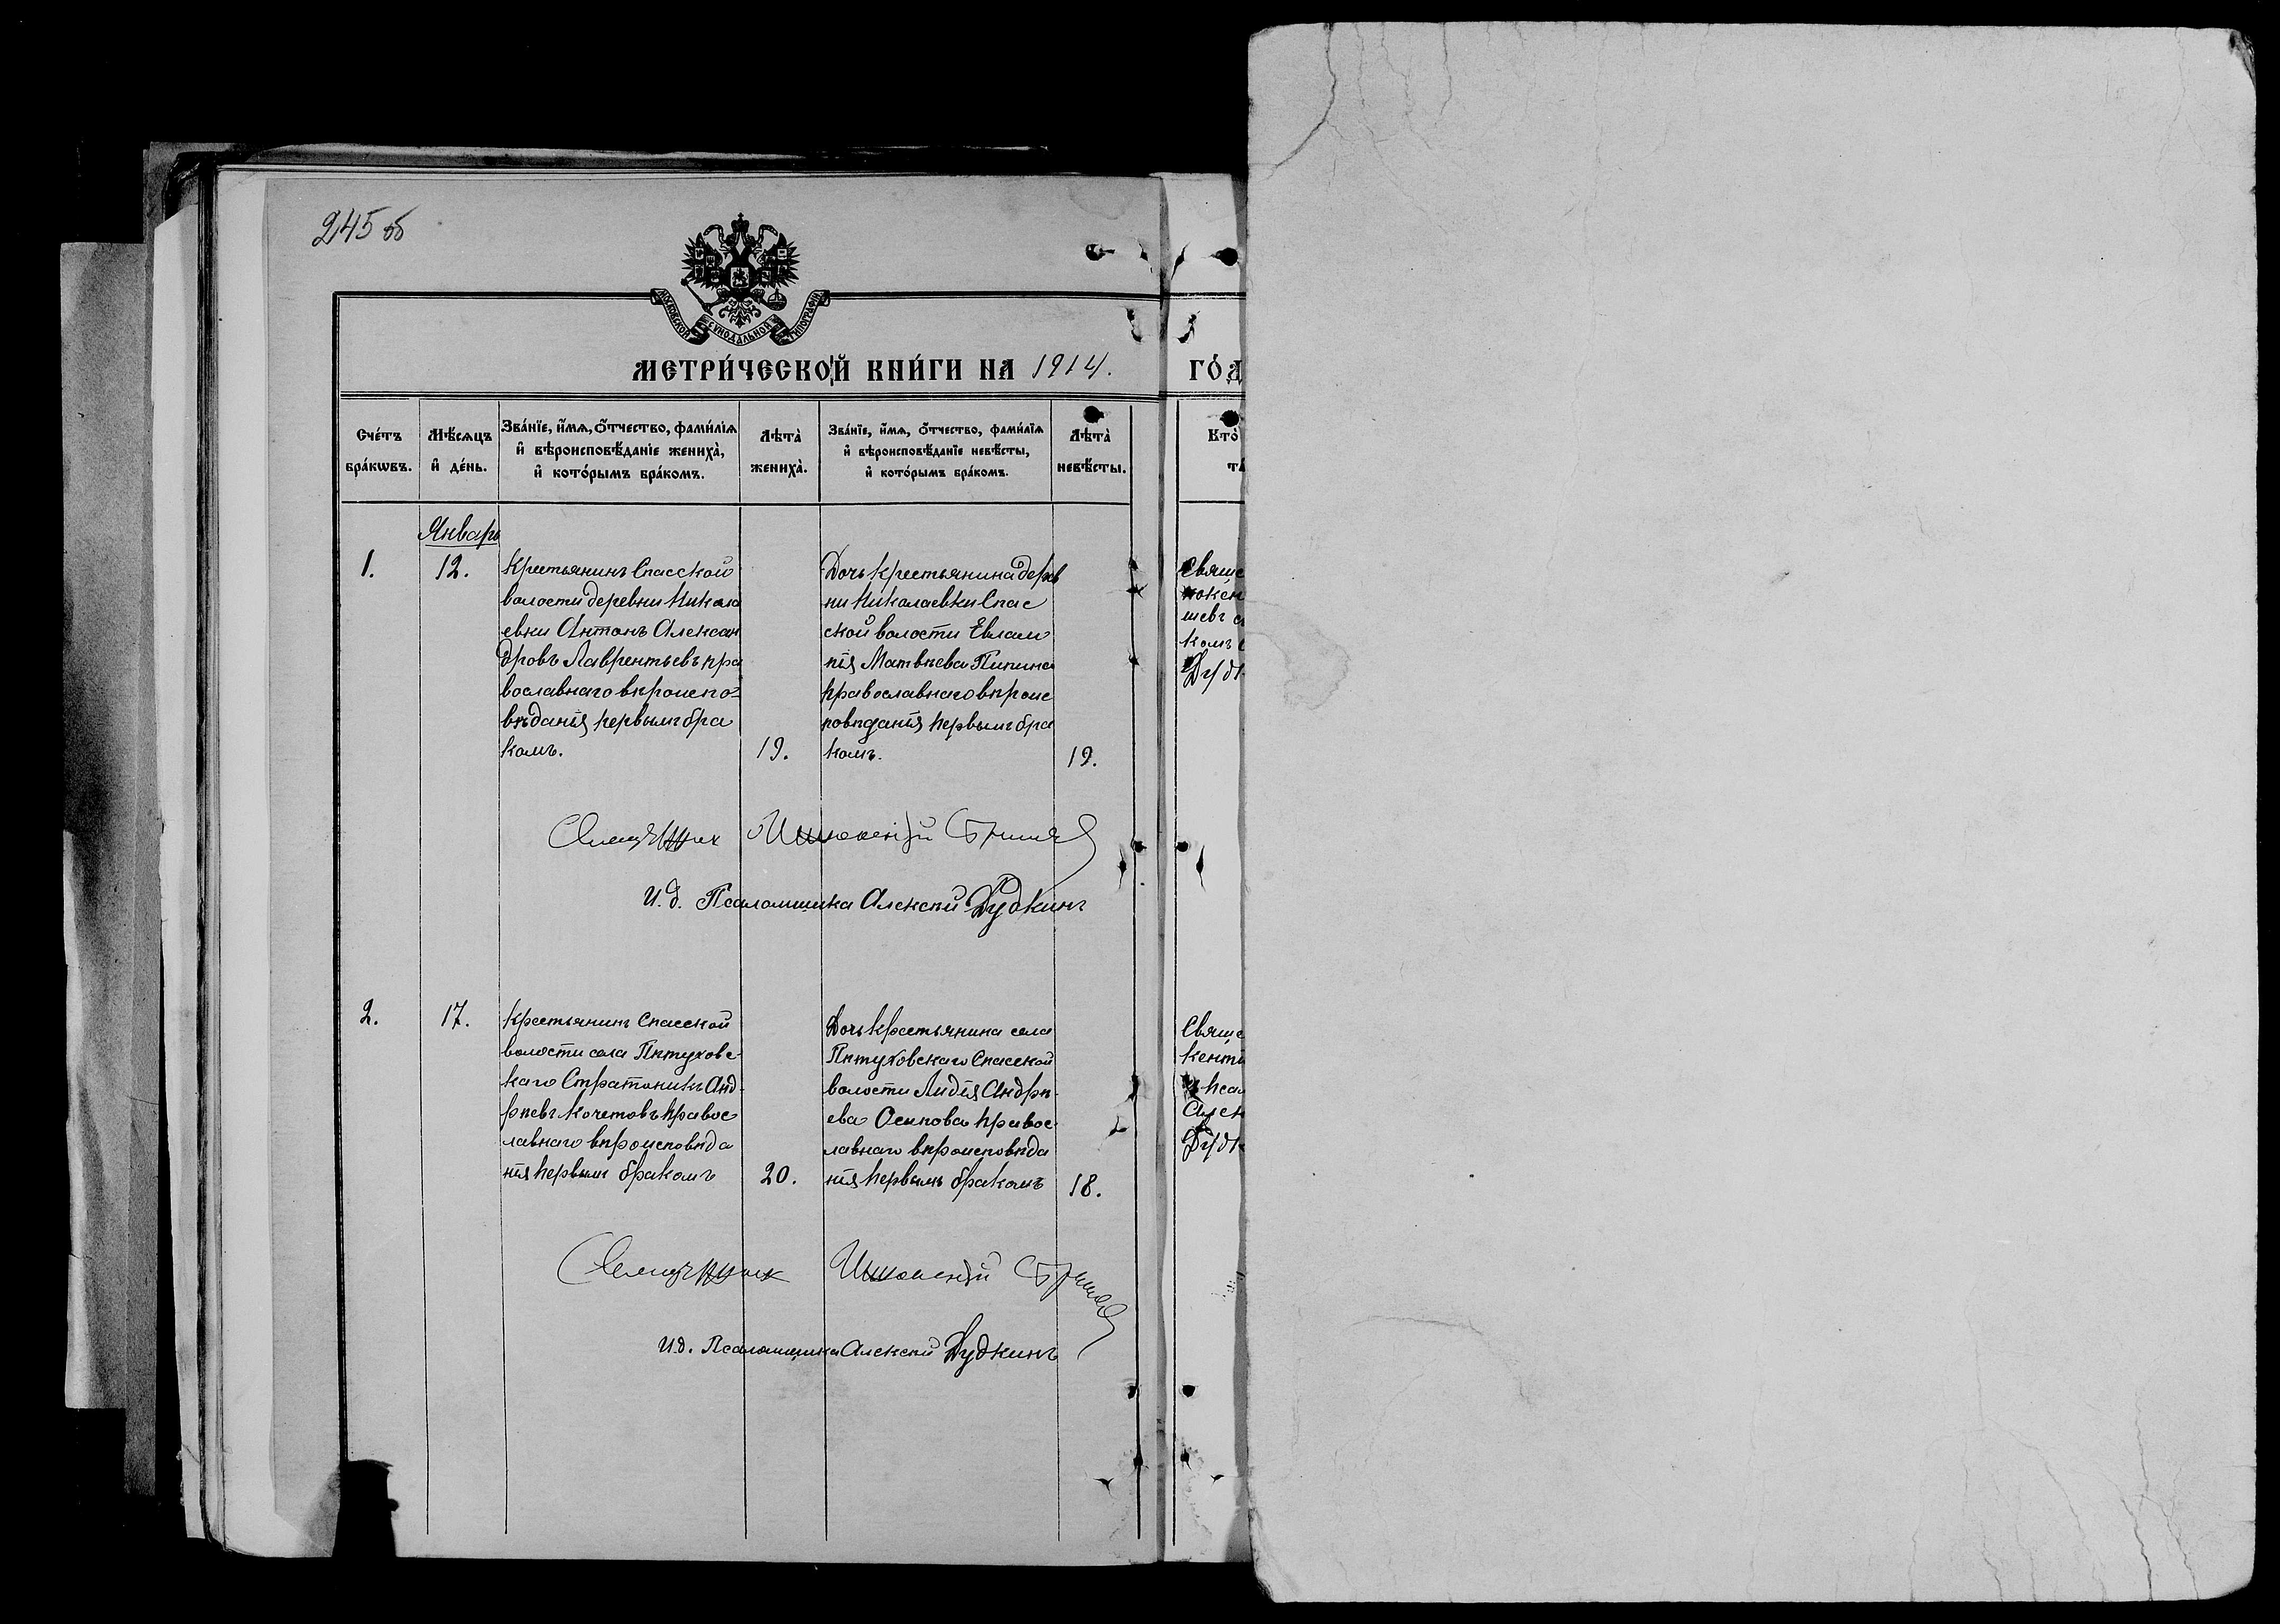 245 об
МОСКОВСКОЙ СѴНОДАЛЬНОЙ ТИПОГРАФІИ
МЕТРИ́ЧЕСКОЙ КНИ́ГИ НА 1914. ГО́Д
Сче́тъ бра́кѡвъ.
Мѣ́сѧцъ и҆ де́нь.
Зва́нїе, и҆́мѧ, ѻ҆́тчество, фами́лїѧ
и҆ вѣроисповѣ́данїе жениха̀,
и҆ кото́рымъ бра́комъ.
Лѣта̀ жениха̀.
Зва́нїе, и҆́мѧ, ѻ҆́тчество, фами́лїѧ
и҆ вѣроисповѣ́данїе невѣ́сты,
и҆ кото́рымъ бра́комъ.
Лѣта̀ невѣ́сты.
Кто̀
Январь
1.
12.
Крестьянинъ Спасской
волости деревни Никола
евки Антонъ Алексан
дровъ Лаврентьевъ пра
вославнаго вѣроиспо-
вѣданія первымъ бра
комъ.
19.
Дочь крестьянина дерев
ни Николаевки Спас
ской волости Евлам
пія Матвѣева Пипина
православнаго вѣроис
повѣданія первымъ бра
комъ.
19.
Свяще
нокен
шевъ
комъ
Дудк
Священник Иннокентий
И.д. Псаломщика Алексѣй Дудкинъ
2.
17.
Крестьянинъ Спасской
волости села Пѣтуховс
каго Стратоникъ Анд-
рѣевъ Кочетовъ правос
лавнаго вѣроисповѣда
нія первымъ бракомъ
20.
Дочь крестьянина села
Пѣтуховскаго Спасской
волости Лидія Андрѣ-
ева Осипова правос
лавнаго вѣроисповѣда
нія первымъ бракомъ
18.
Свяще
кенти
псал
Алек
Дудк
Священник Иннокентий
И.д. Псаломщика Алексѣй Дудкинъ